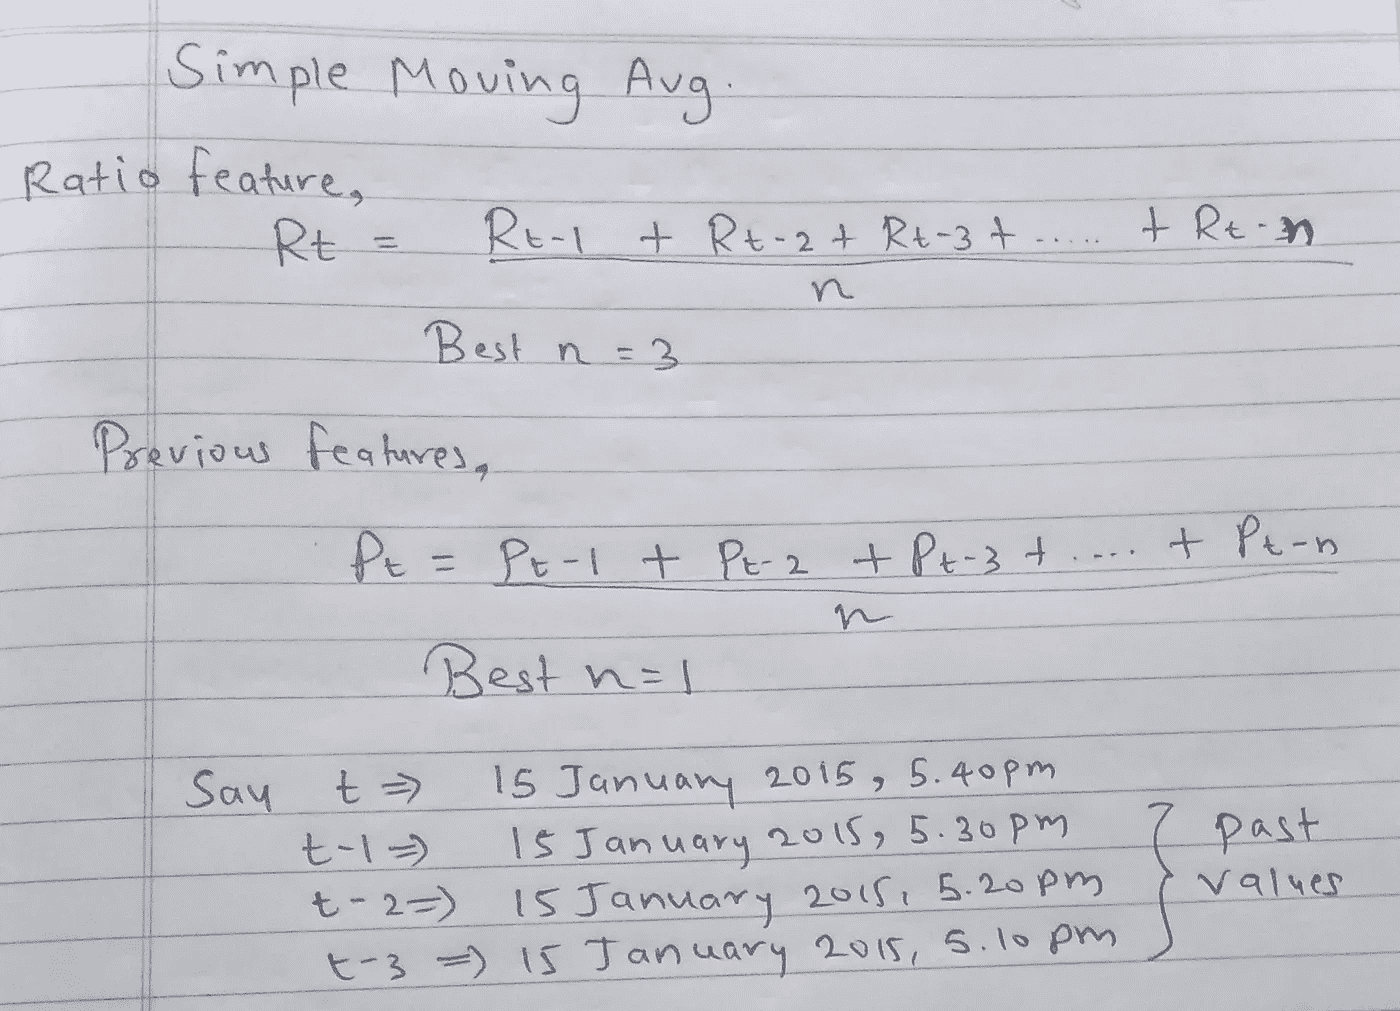 Simple Moving Avg.
Ratio feature,
Rt = Rt-1 + Rt-2 + Rt-3 + ..... + Rt-n
n
Best n = 3
Previous features,
Pt = Pt-1 + Pt-2 + Pt-3 + .... + Pt-n
n
Best n=1
Say t ⇒ 15 January 2015, 5.40pm
t-1 ⇒ 15 January 2015, 5.30 pm } past
t-2 ⇒ 15 January 2015, 5.20 pm values
t-3 ⇒ 15 January 2015, 5.10 pm